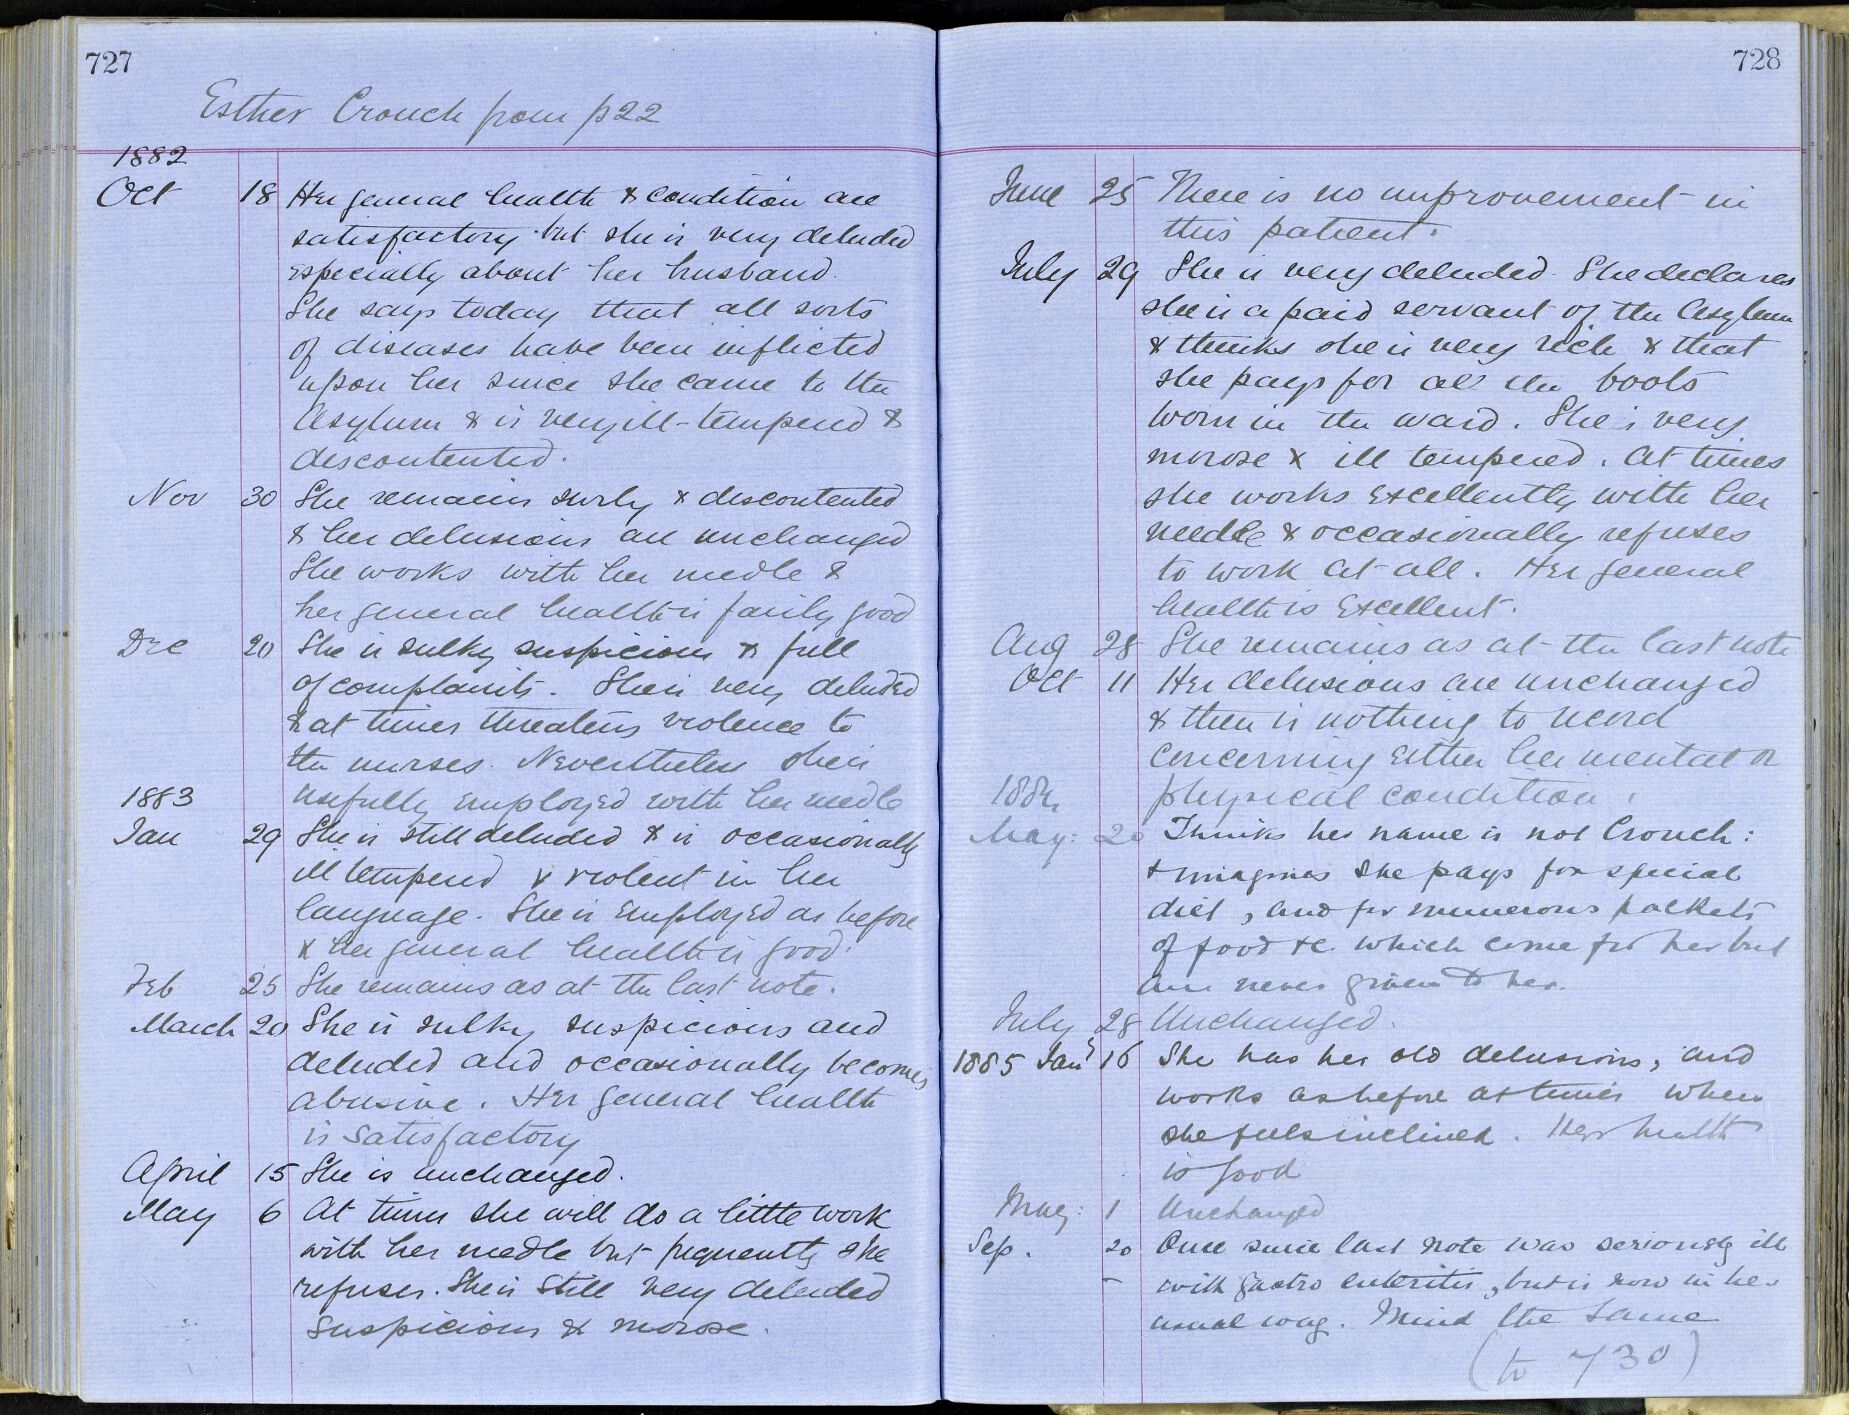 727
Esther Crouch from p22
1882
Oct 18 Her general health & condition are
satisfactory but she is very deluded
especially about her husband.
She says today that all sorts
of diseases have been inflicted
upon her since she came to the
Asylum & is very ill-tempered &
discontented.
Nov 30 She remains surly & discontented
& her delusions are unchanged
She works with her needle &
her general health is fairly good
Dec 20 She is sulky suspicious & full
of complaints. She is very deluded
& at times threatens violence to
the nurses. Nevertheless she is
usefully employed with her needle
1883
Jan 29 She is still deluded & is occasionally
ill tempered & violent in her
language. She is employed as before
& her general health is good.
Feb 25 She remains as at the last note.
March 20 She is sulky suspicious and
deluded and occasionally becomes
abusive. Her general health
is satisfactory
April 15 She is unchanged.
May 6 At times she will do a little work
with her needle but frequently she
refuses. She is still very deluded
suspicious & morose.
728
June 25 There is no improvement in
this patient.
July 29 She is very deluded. She declares
she is a paid servant of the Asylum
& thinks she is very rich & that
she pays for all the boots
worn in the ward. She is very
morose & ill tempered. At times
she works excellently with her
needle & occasionally refuses
to work at all. Her general
health is excellent.
Aug 28 She remains as at the last note
Oct 11 Her delusions are unchanged
& there is nothing to record
concerning either her mental or
physical condition.
1884
May: 20 Thinks her name is not Crouch:
& imagines she pays for special
diet, and for numerous packets
of food &c. which come for her but
are never given to her.
July 28 Unchanged.
1885 Jany 16 She has her old delusions, and
works as before at times when
she feels inclined. Her health
is good
May: 1 Unchanged
Sep. 20 Once since last note was seriously ill
with gastro enteritis, but is now in her
usual way. Mind the same
(to 730)